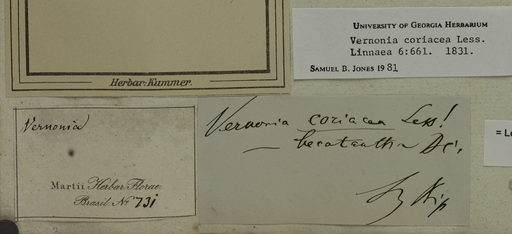 UNIVERSITY OF GEORGIA HERBARIUM
Vernonia coriacea Less.
Linnaea 6:661. 1831.
SAMUEL B. JONES 1981
Herbar. Kummer.
Vernonia
Martii Herbar. Florae
Brasil. No 731
Vernonia coriacea Less!
— DC.